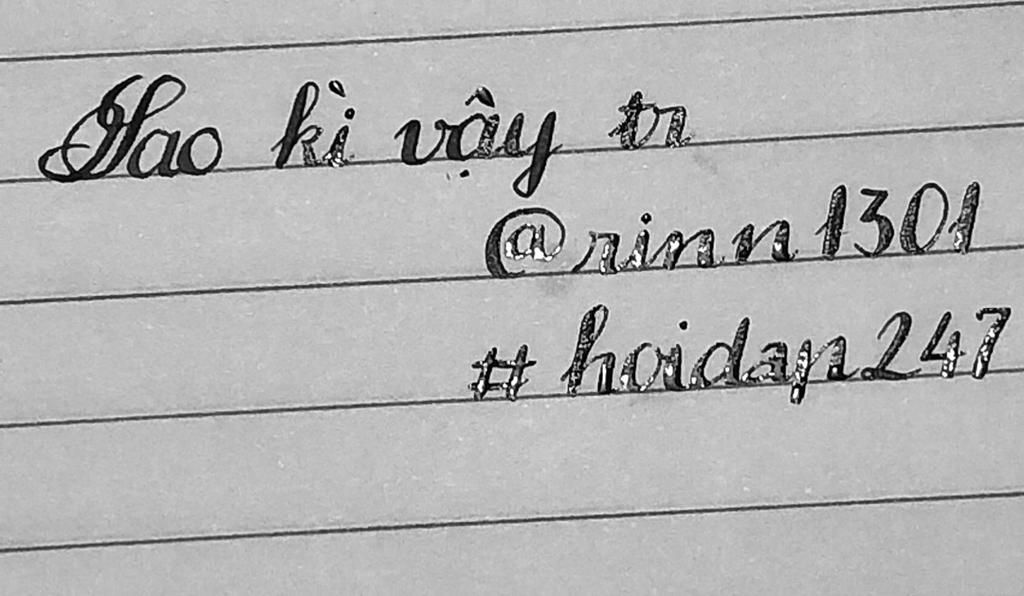 Sao kì vậy tr
@rinn1301
#hoidap247